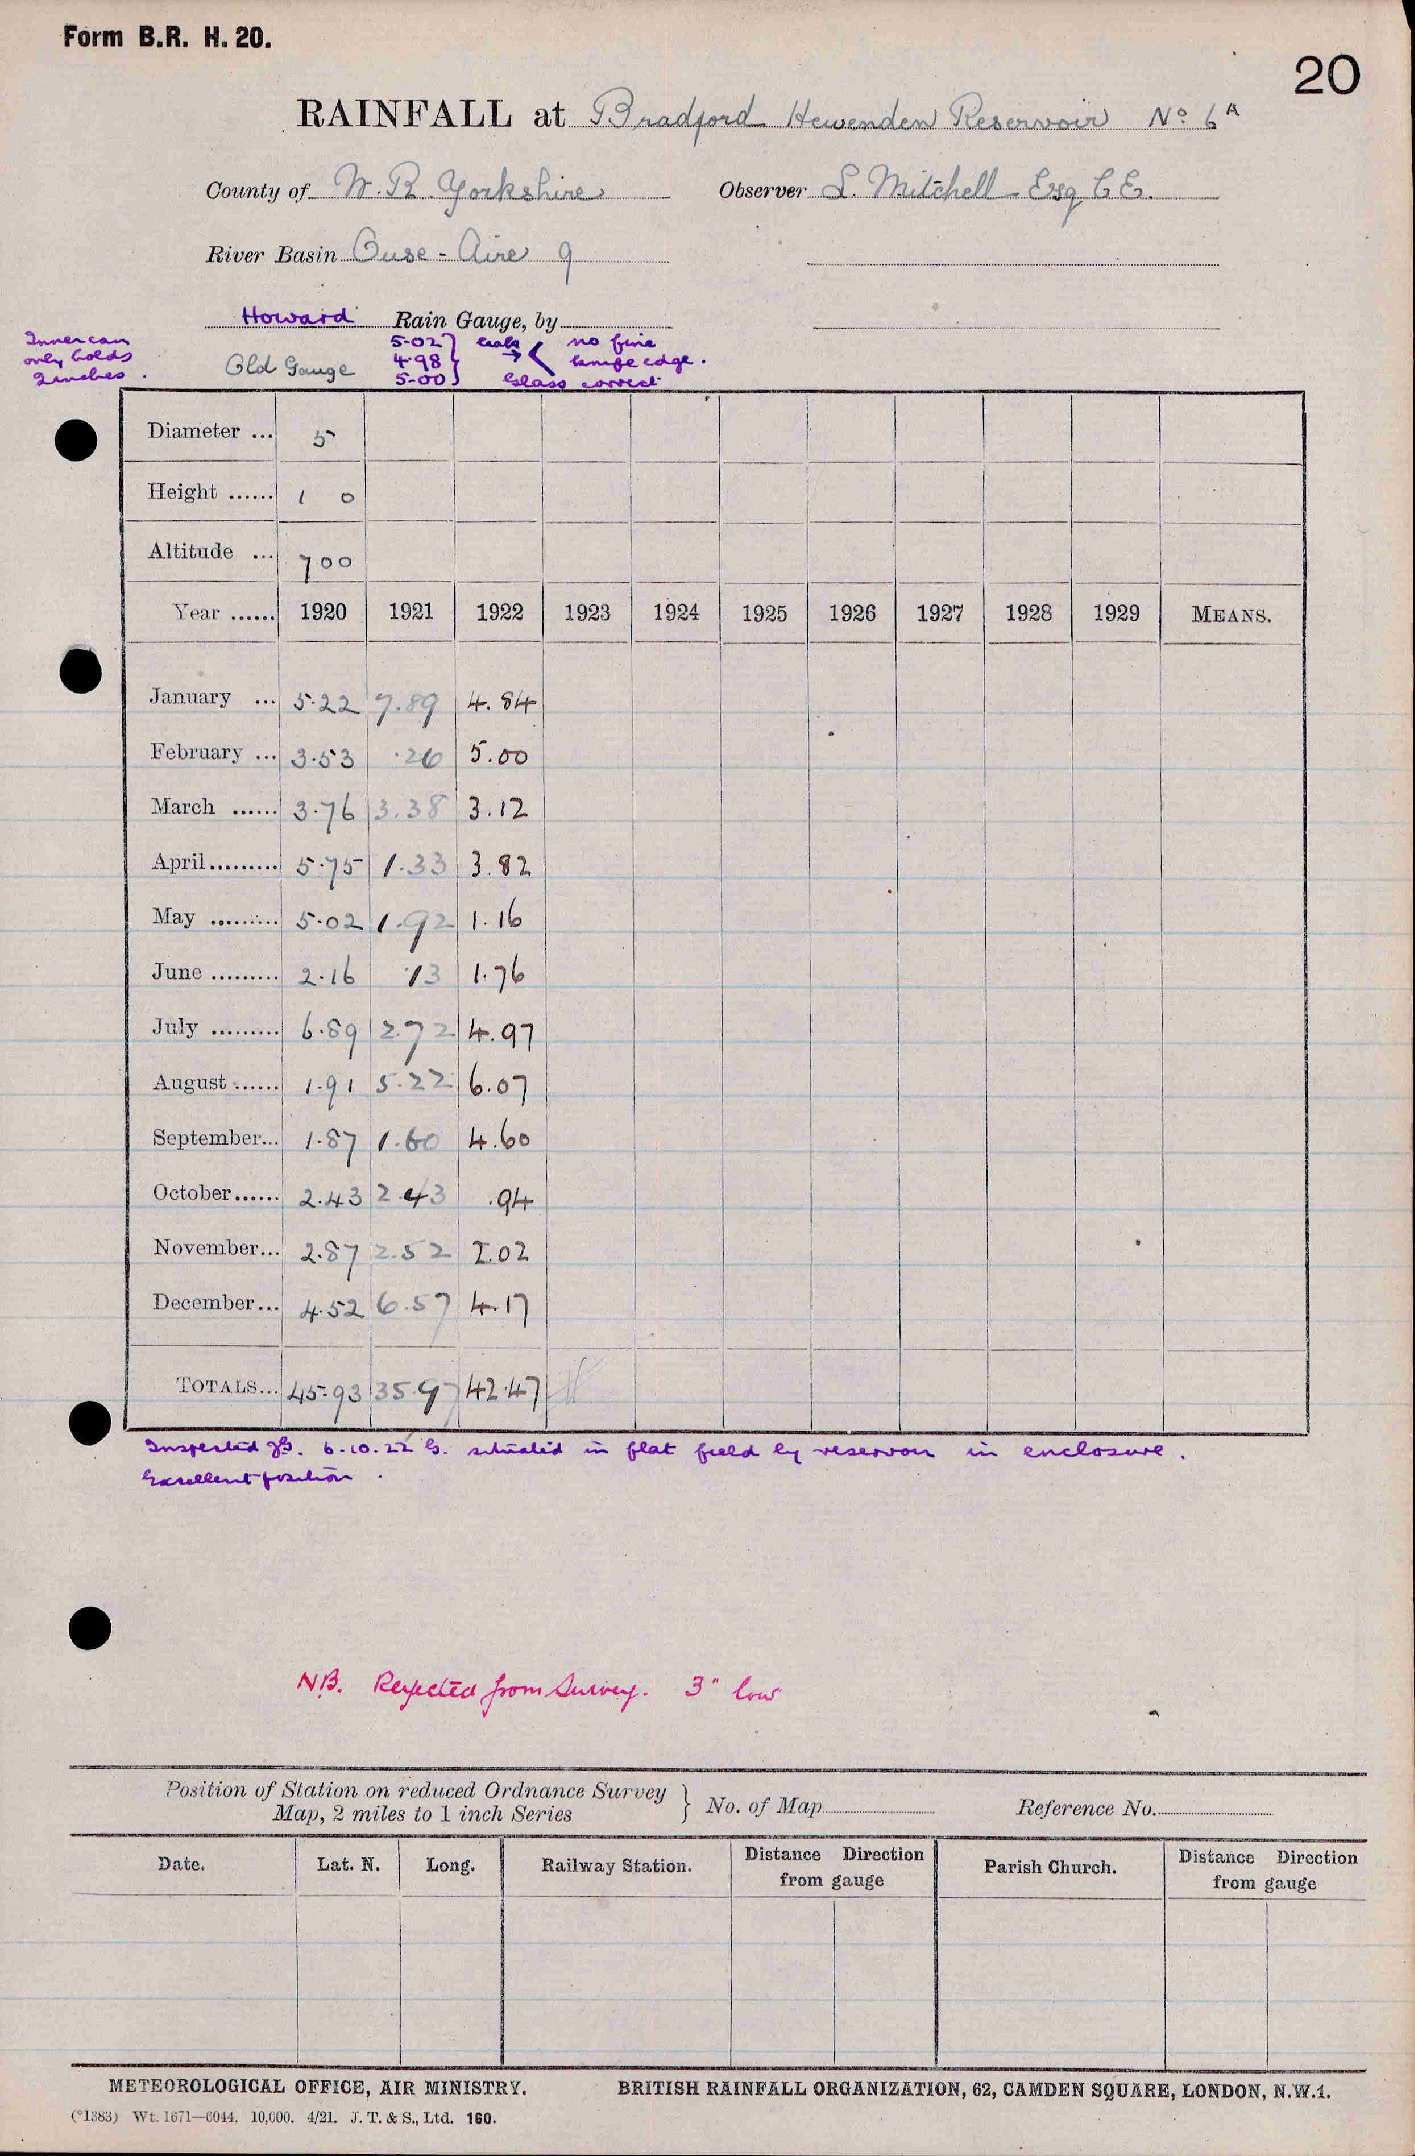 Form B.R. H. 20.
20
RAINFALL at Bradford Hewenden Reservoir No 6A
County of W. R. Yorkshire Observer L. Mitchell Esq C E.
River Basin Ouse - Aire 9
Howard Rain Gauge, by
Inner can only holds 2 inches.
Old Gauge 5.02 4.98 5.00 leaks → no fine knife edge. Glass correct
Diameter ... 5
Height ...... 1 0
Altitude ... 700
Year ...... 1920 1921 1922 1923 1924 1925 1926 1927 1928 1929 MEANS.
January ... 5.22 7.89 4.84
February ... 3.53 .26 5.00
March ...... 3.76 3.38 3.12
April......... 5.75 1.33 3.82
May ......... 5.02 1.92 1.16
June ......... 2.16 .13 1.76
July ......... 6.89 2.72 4.97
August ...... 1.91 5.22 6.07
September... 1.87 1.60 4.60
October...... 2.43 2.43 .94
November... 2.87 2.52 2.02
December... 4.52 6.57 4.17
TOTALS... 45.93 35.97 42.47
Inspected 6.10.22 situated in flat field by reservoir in enclosure.
Excellent position.
N.B. Rejected from Survey. 3" low
Position of Station on reduced Ordnance Survey
Map, 2 miles to 1 inch Series } No. of Map Reference No.
Date. Lat. N. Long. Railway Station. Distance Direction from gauge Parish Church. Distance Direction from gauge
METEOROLOGICAL OFFICE, AIR MINISTRY. BRITISH RAINFALL ORGANIZATION, 62, CAMDEN SQUARE, LONDON, N.W.1.
(*1383) Wt. 1671—6044. 10,000. 4/21. J. T. & S., Ltd. 160.